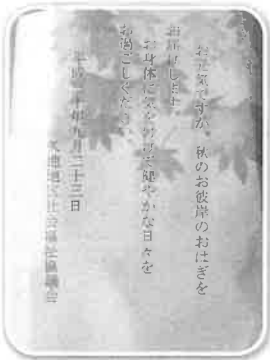 お元気ですか。秋のお彼岸のおはぎを
お届けします。
お身体に気を付けて健やかな日々を
お過ごしください。
平成二十年九月二十三日